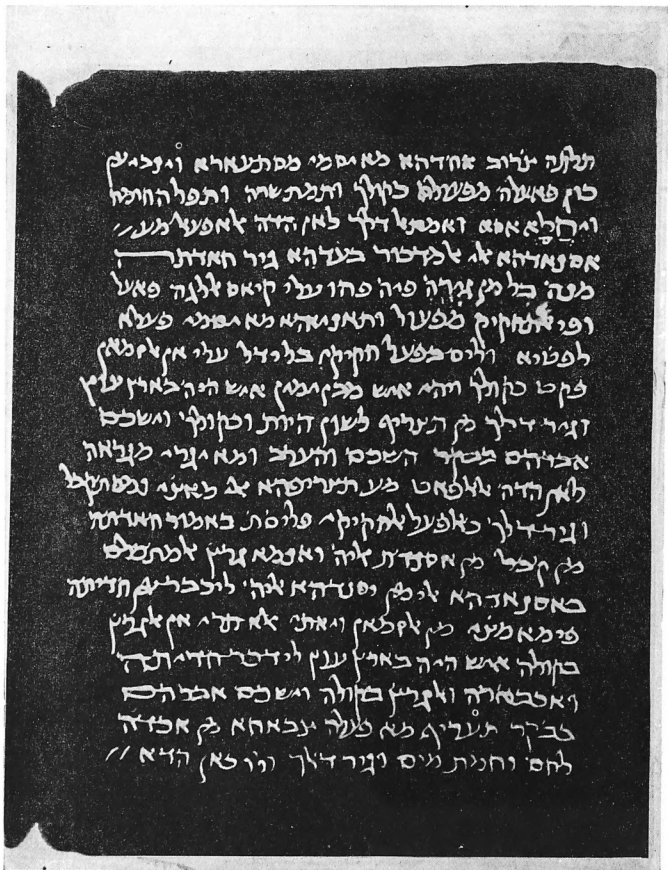 תלתה צ̇רוב אחדהא מא יסמי מסתעארא
כון פאעלה מפעולא כקולך ותמת שרה ותפל החומה
אסא ואמתאל דלך לאן הדה אלאפעאל מע //
אסנאדהא אלי אלמדכור בעדהא גיר חאדתה
מנה בל מן גירה פיה פהו עלי קיאס אללגה פאעל
ופי אלתחקיק מפעול ותאניהא מא יסמי פעלא
לפטיא וליס בפעל חקיקי בל ידל עלי אלזמאן
פקט כקולך והיה איש מבנימין איש היה בארץ עוץ
וגיר דלך מן תצריף לשון היות וכקולך וישכם
אברהם בבקר השכם והערב ומא יגרי מגראה
לאן הדה אלאלפאט מע תצריפהא אלי מאצ̇י ומסתקבל
וגיר דלך כאלאפעאל אלחקיקיה פליסת באמור חאדתה
מן קבל מן אסנדת אליה ואנמא גרץ̇ אלמתכלם
באסנאדהא אלי מן יסנדהא אליה
פימא מצ̇י מן אלזמאן ויאתי אלא תרי אן אלגרץ̇
בקולה איש היה בארץ עוץ לידכר
ואכבארה ואלגרץ̇ בקולה וישכם אברהם
בבקר תעריף מא פעלה צבאחא מן אכדה
לחם וחמת מים וגיר דלך ולו כאן הדא //